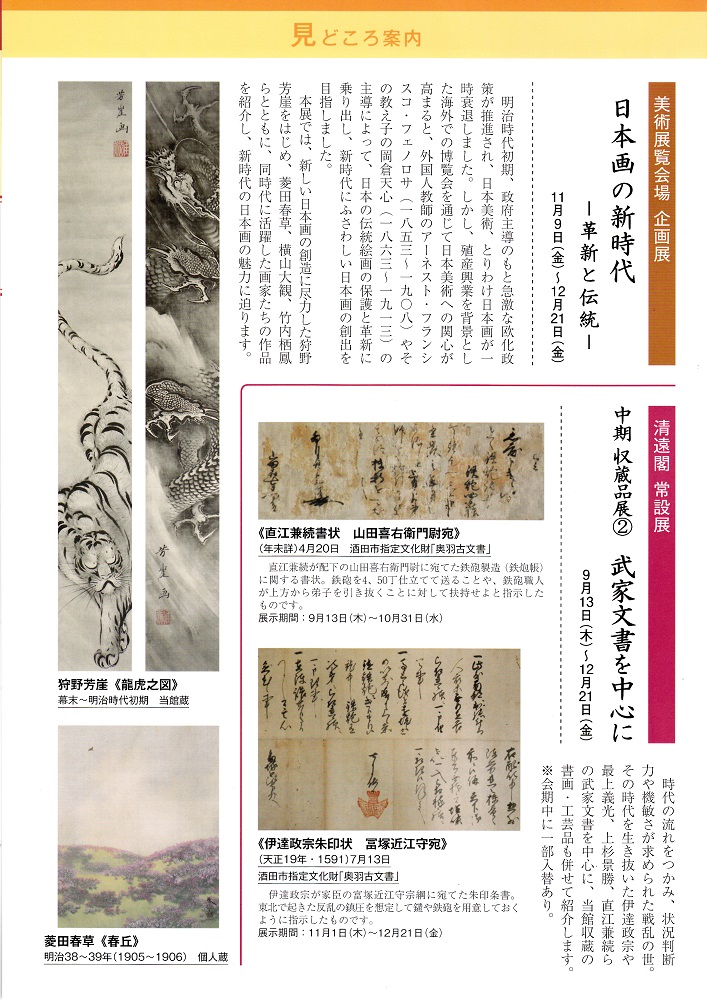 見どころ案内
美術展覧会場 企画展
日本画の新時代
―革新と伝統―
11月9日(金)～12月21日(金)
明治時代初期、政府主導のもと急激な欧化政
策が推進され、日本美術、とりわけ日本画が一
時衰退しました。しかし、殖産興業を背景とし
た海外での博覧会を通じて日本美術への関心が
高まると、外国人教師のアーネスト・フランシ
スコ・フェノロサ（一八五三～一九〇八）やそ
の教え子の岡倉天心（一八六三～一九一三）の
主導によって、日本の伝統絵画の保護と革新に
乗り出し、新時代にふさわしい日本画の創出を
目指しました。
本展では、新しい日本画の創造に尽力した狩野
芳崖をはじめ、菱田春草、横山大観、竹内栖鳳
らとともに、同時代に活躍した画家たちの作品
を紹介し、新時代の日本画の魅力に迫ります。
芳崖画
芳崖画
狩野芳崖《龍虎之図》
幕末～明治時代初期　当館蔵
菱田春草《春丘》
明治38～39年(1905～1906)　個人蔵
清遠閣 常設展
中期 収蔵品展② 武家文書を中心に
9月13日(木)～12月21日(金)
時代の流れをつかみ、状況判断
力や機敏さが求められた戦乱の世。
その時代を生き抜いた伊達政宗や
最上義光、上杉景勝、直江兼続ら
の武家文書を中心に、当館収蔵の
書画・工芸品も併せて紹介します。
※会期中に一部入替あり。
《直江兼続書状　山田喜右衛門尉宛》
(年未詳)4月20日　酒田市指定文化財「奥羽古文書」
直江兼続が配下の山田喜右衛門尉に宛てた鉄炮製造（鉄炮帳）
に関する書状。鉄炮を4、50丁仕立てて送ることや、鉄炮職人
が上方から弟子を引き抜くことに対して扶持せよと指示した
ものです。
展示期間：9月13日(木)～10月31日(水)
《伊達政宗朱印状　冨塚近江守宛》
(天正19年・1591)7月13日
酒田市指定文化財「奥羽古文書」
伊達政宗が家臣の富塚近江守宗綱に宛てた朱印条書。
東北で起きた反乱の鎮圧を想定して鑓や鉄炮を用意しておく
ように指示したものです。
展示期間：11月1日(木)～12月21日(金)